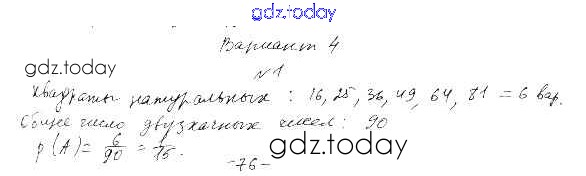 gdz.today
Вариант 4
gdz.today
№1
Квадраты натуральных : 16, 25, 36, 49, 64, 81 = 6 вар.
Общее число двузначных чисел: 90
p(A) = 6/90 = 1/15.
gdz.today
-76-